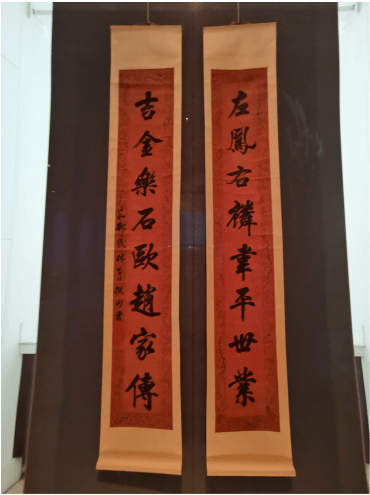 左鳳右麟韋平世業
吉金樂石歐趙家傳